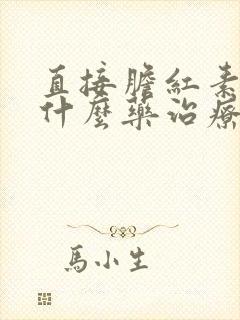 直接膽紅素
什麼藥治療
馬小生